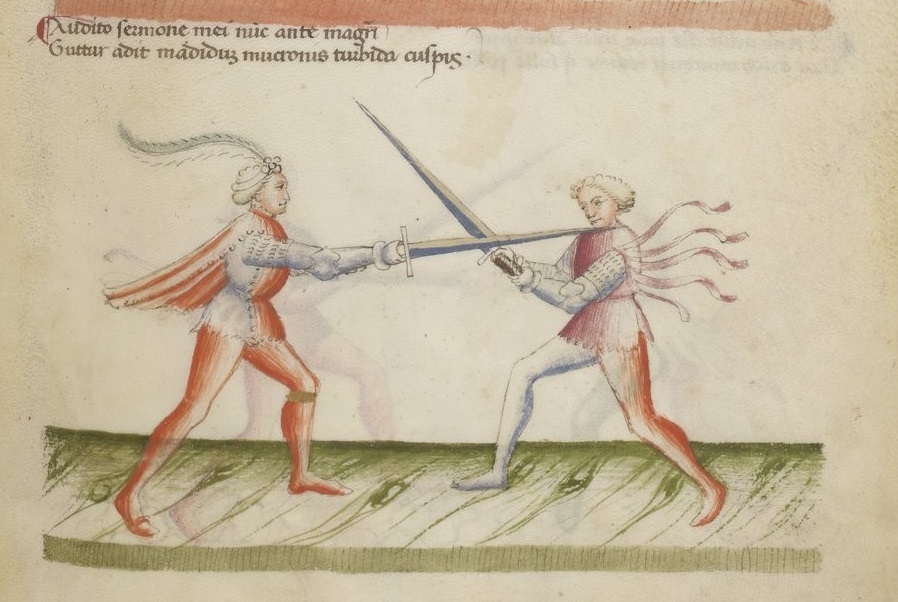 Audito sermone mei nūc ante magr̄i
Guttur adit mādiduz mucronis turbida cuspis.